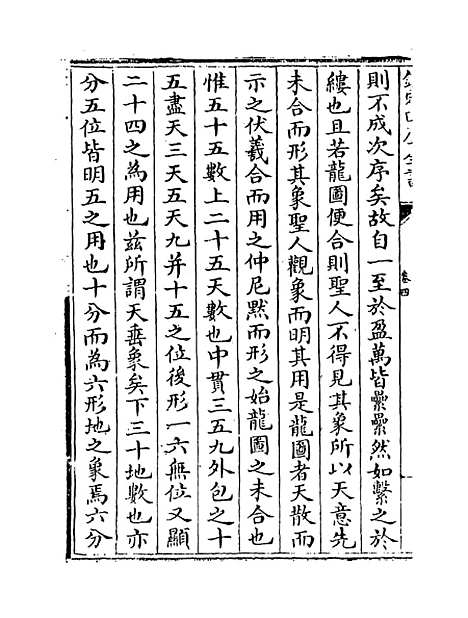 欽定四庫全書
卷四
則不成次序矣故自一至於盈萬皆纍纍然如繫之於
縷也且若龍圖便合則聖人不得見其象所以天意先
未合而形其象聖人觀象而明其用是龍圖者天散而
示之伏羲合而用之仲尼默而形之始龍圖之未合也
惟五十五數上二十五天數也中貫三五九外包之十
五盡天三天五天九并十五之位後形一六無位又顯
二十四之為用也兹所謂天垂象矣下三十地數也亦
分五位皆明五之用也十分而為六形地之象焉六分